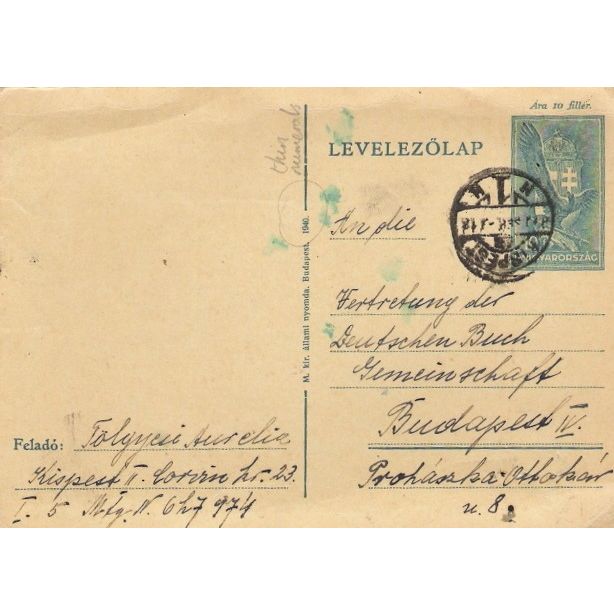 Ára 10 fillér.
LEVELEZŐLAP
MAGYARORSZÁG
thin
numerals
An die
Vertretung der
Deutschen Buch
Gemeinschaft
Budapest IV.
Prohászka Ottokár
u. 8.
M. kir. állami nyomda. Budapest. 1940.
Feladó: Tölgyesi Aurélia
Kispest II. Corvin kr. 23.
I. 5 Mfg. N. 6h7 974